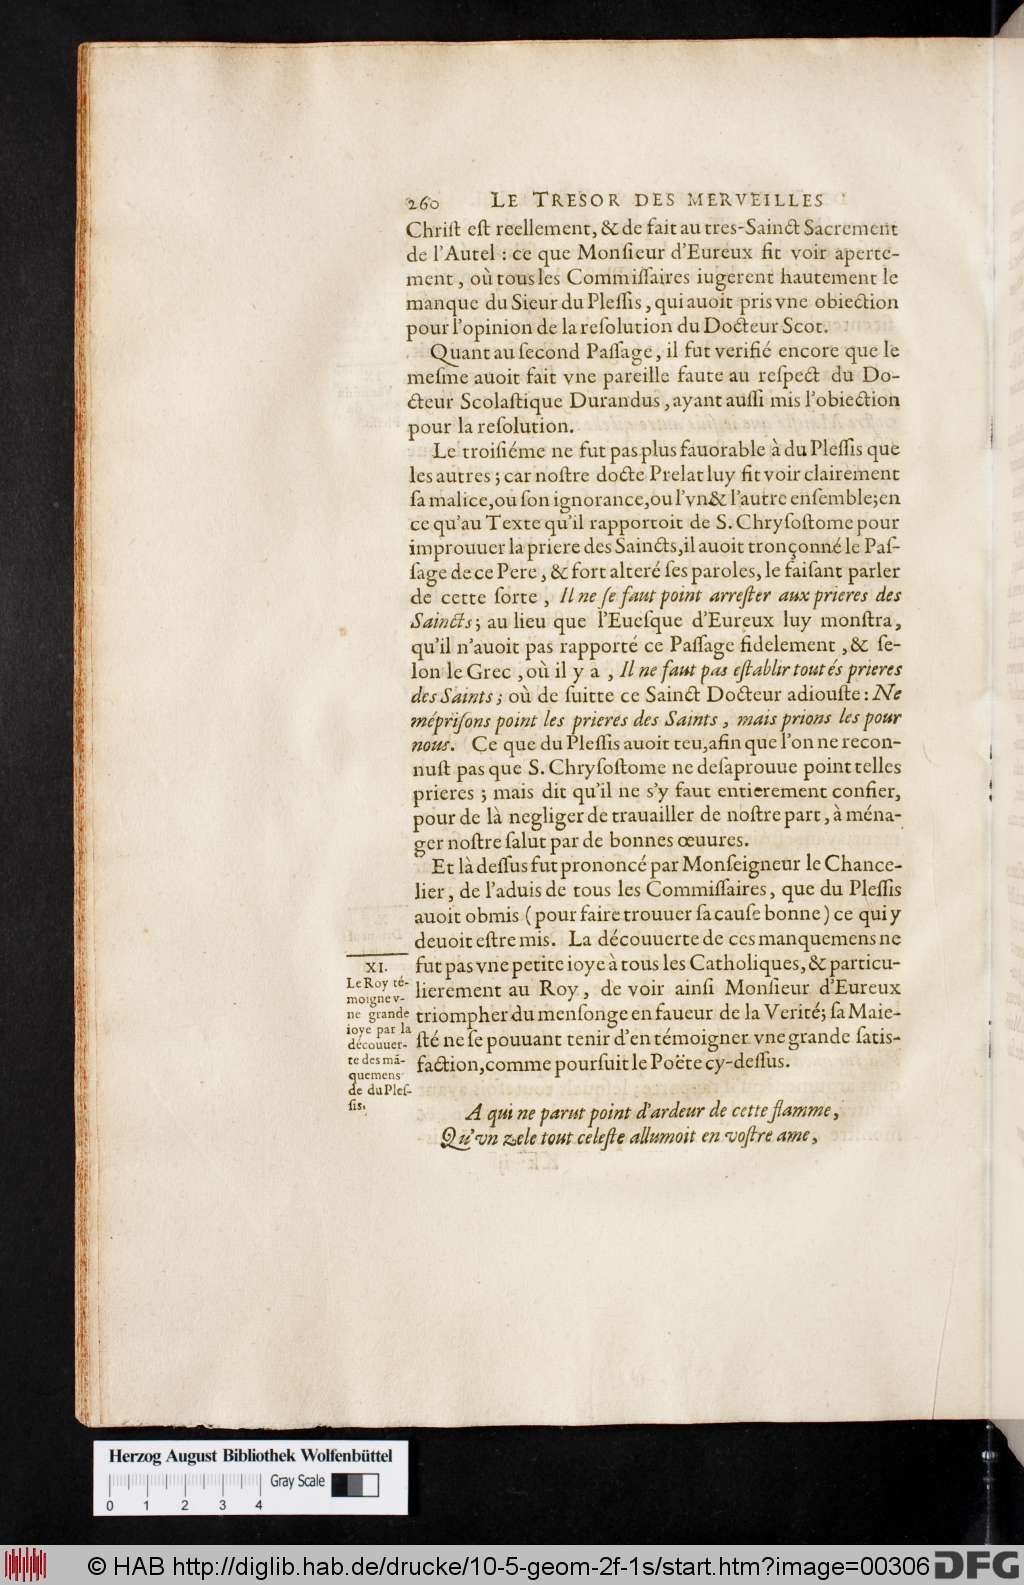 260 LE TRESOR DES MERVEILLES
Chriſt eſt reellement, & de fait au tres-Sainct Sacrement
de l'Autel : ce que Monſieur d'Eureux fit voir aperte-
ment, où tous les Commiſſaires iugerent hautement le
manque du Sieur du Pleſſis, qui auoit pris vne obiection
pour l'opinion de la reſolution du Docteur Scot.
Quant au ſecond Paſſage, il fut verifié encore que le
meſme auoit fait vne pareille faute au reſpect du Do-
cteur Scolaſtique Durandus, ayant auſſi mis l'obiection
pour la reſolution.
Le troiſiéme ne fut pas plus fauorable à du Pleſſis que
les autres ; car noſtre docte Prelat luy fit voir clairement
ſa malice, ou ſon ignorance, ou l'vn & l'autre enſemble; en
ce qu'au Texte qu'il rapportoit de S. Chryſoſtome pour
improuuer la priere des Saincts, il auoit tronçonné le Paſ-
ſage de ce Pere, & fort alteré ſes paroles, le faiſant parler
de cette ſorte, Il ne ſe faut point arreſter aux prieres des
Saincts ; au lieu que l'Eueſque d'Eureux luy monſtra,
qu'il n'auoit pas rapporté ce Paſſage fidelement, & ſe-
lon le Grec, où il y a, Il ne faut pas eſtablir tout és prieres
des Saints ; où de ſuitte ce Sainct Docteur adiouſte : Ne
mépriſons point les prieres des Saints, mais prions les pour
nous. Ce que du Pleſſis auoit teu, afin que l'on ne recon-
nuſt pas que S. Chryſoſtome ne deſaprouue point telles
prieres ; mais dit qu'il ne s'y faut entierement confier,
pour de là negliger de trauailler de noſtre part, à ména-
ger noſtre ſalut par de bonnes œuures.
Et là deſſus fut prononcé par Monſeigneur le Chance-
lier, de l'aduis de tous les Commiſſaires, que du Pleſſis
auoit obmis (pour faire trouuer ſa cauſe bonne) ce qui y
deuoit eſtre mis. La découuerte de ces manquemens ne
fut pas vne petite ioye à tous les Catholiques, & particu-
lierement au Roy, de voir ainſi Monſieur d'Eureux
triompher du menſonge en faueur de la Verité; ſa Maie-
ſté ne ſe pouuant tenir d'en témoigner vne grande ſatis-
faction, comme pourſuit le Poëte cy-deſſus.
XI.
Le Roy té-
moigne v-
ne grande
ioye par la
découuer-
te des mā-
quemens
de du Pleſ-
ſis.
A qui ne parut point d'ardeur de cette flamme,
Qu'vn zele tout celeſte allumoit en voſtre ame,
Herzog August Bibliothek Wolfenbüttel
Gray Scale
0 1 2 3 4
© HAB http://diglib.hab.de/drucke/10-5-geom-2f-1s/start.htm?image=00306 DFG